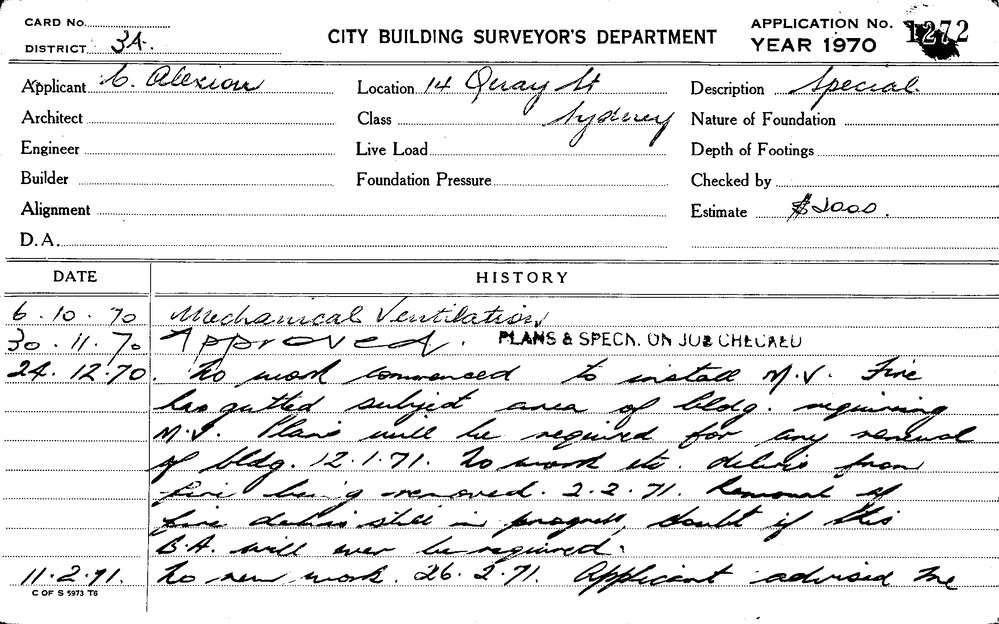 CARD No.
DISTRICT 3A.
CITY BUILDING SURVEYOR'S DEPARTMENT
APPLICATION No. 1272
YEAR 1970
Applicant C. Alexiou Location 14 Quay St Description Special.
Architect Class Sydney Nature of Foundation
Engineer Live Load Depth of Footings
Builder Foundation Pressure Checked by
Alignment Estimate $2000.
D.A.
DATE HISTORY
6.10.70 Mechanical Ventilation
30.11.70 Approved. PLANS & SPECN. ON JOB CHECKED
24.12.70. No work commenced to install M.V. Fire
has gutted subject area of bldg. requiring
M.V. Plans will be required for any renewal
of bldg. 12.1.71. No work etc. debris from
fire being removed. 2.2.71. Removal of
fire debris still in progress, doubt if this
B.A. will ever be required.
11.2.71. No new work. 26.2.71. Applicant advised me
C OF S 5973 T6